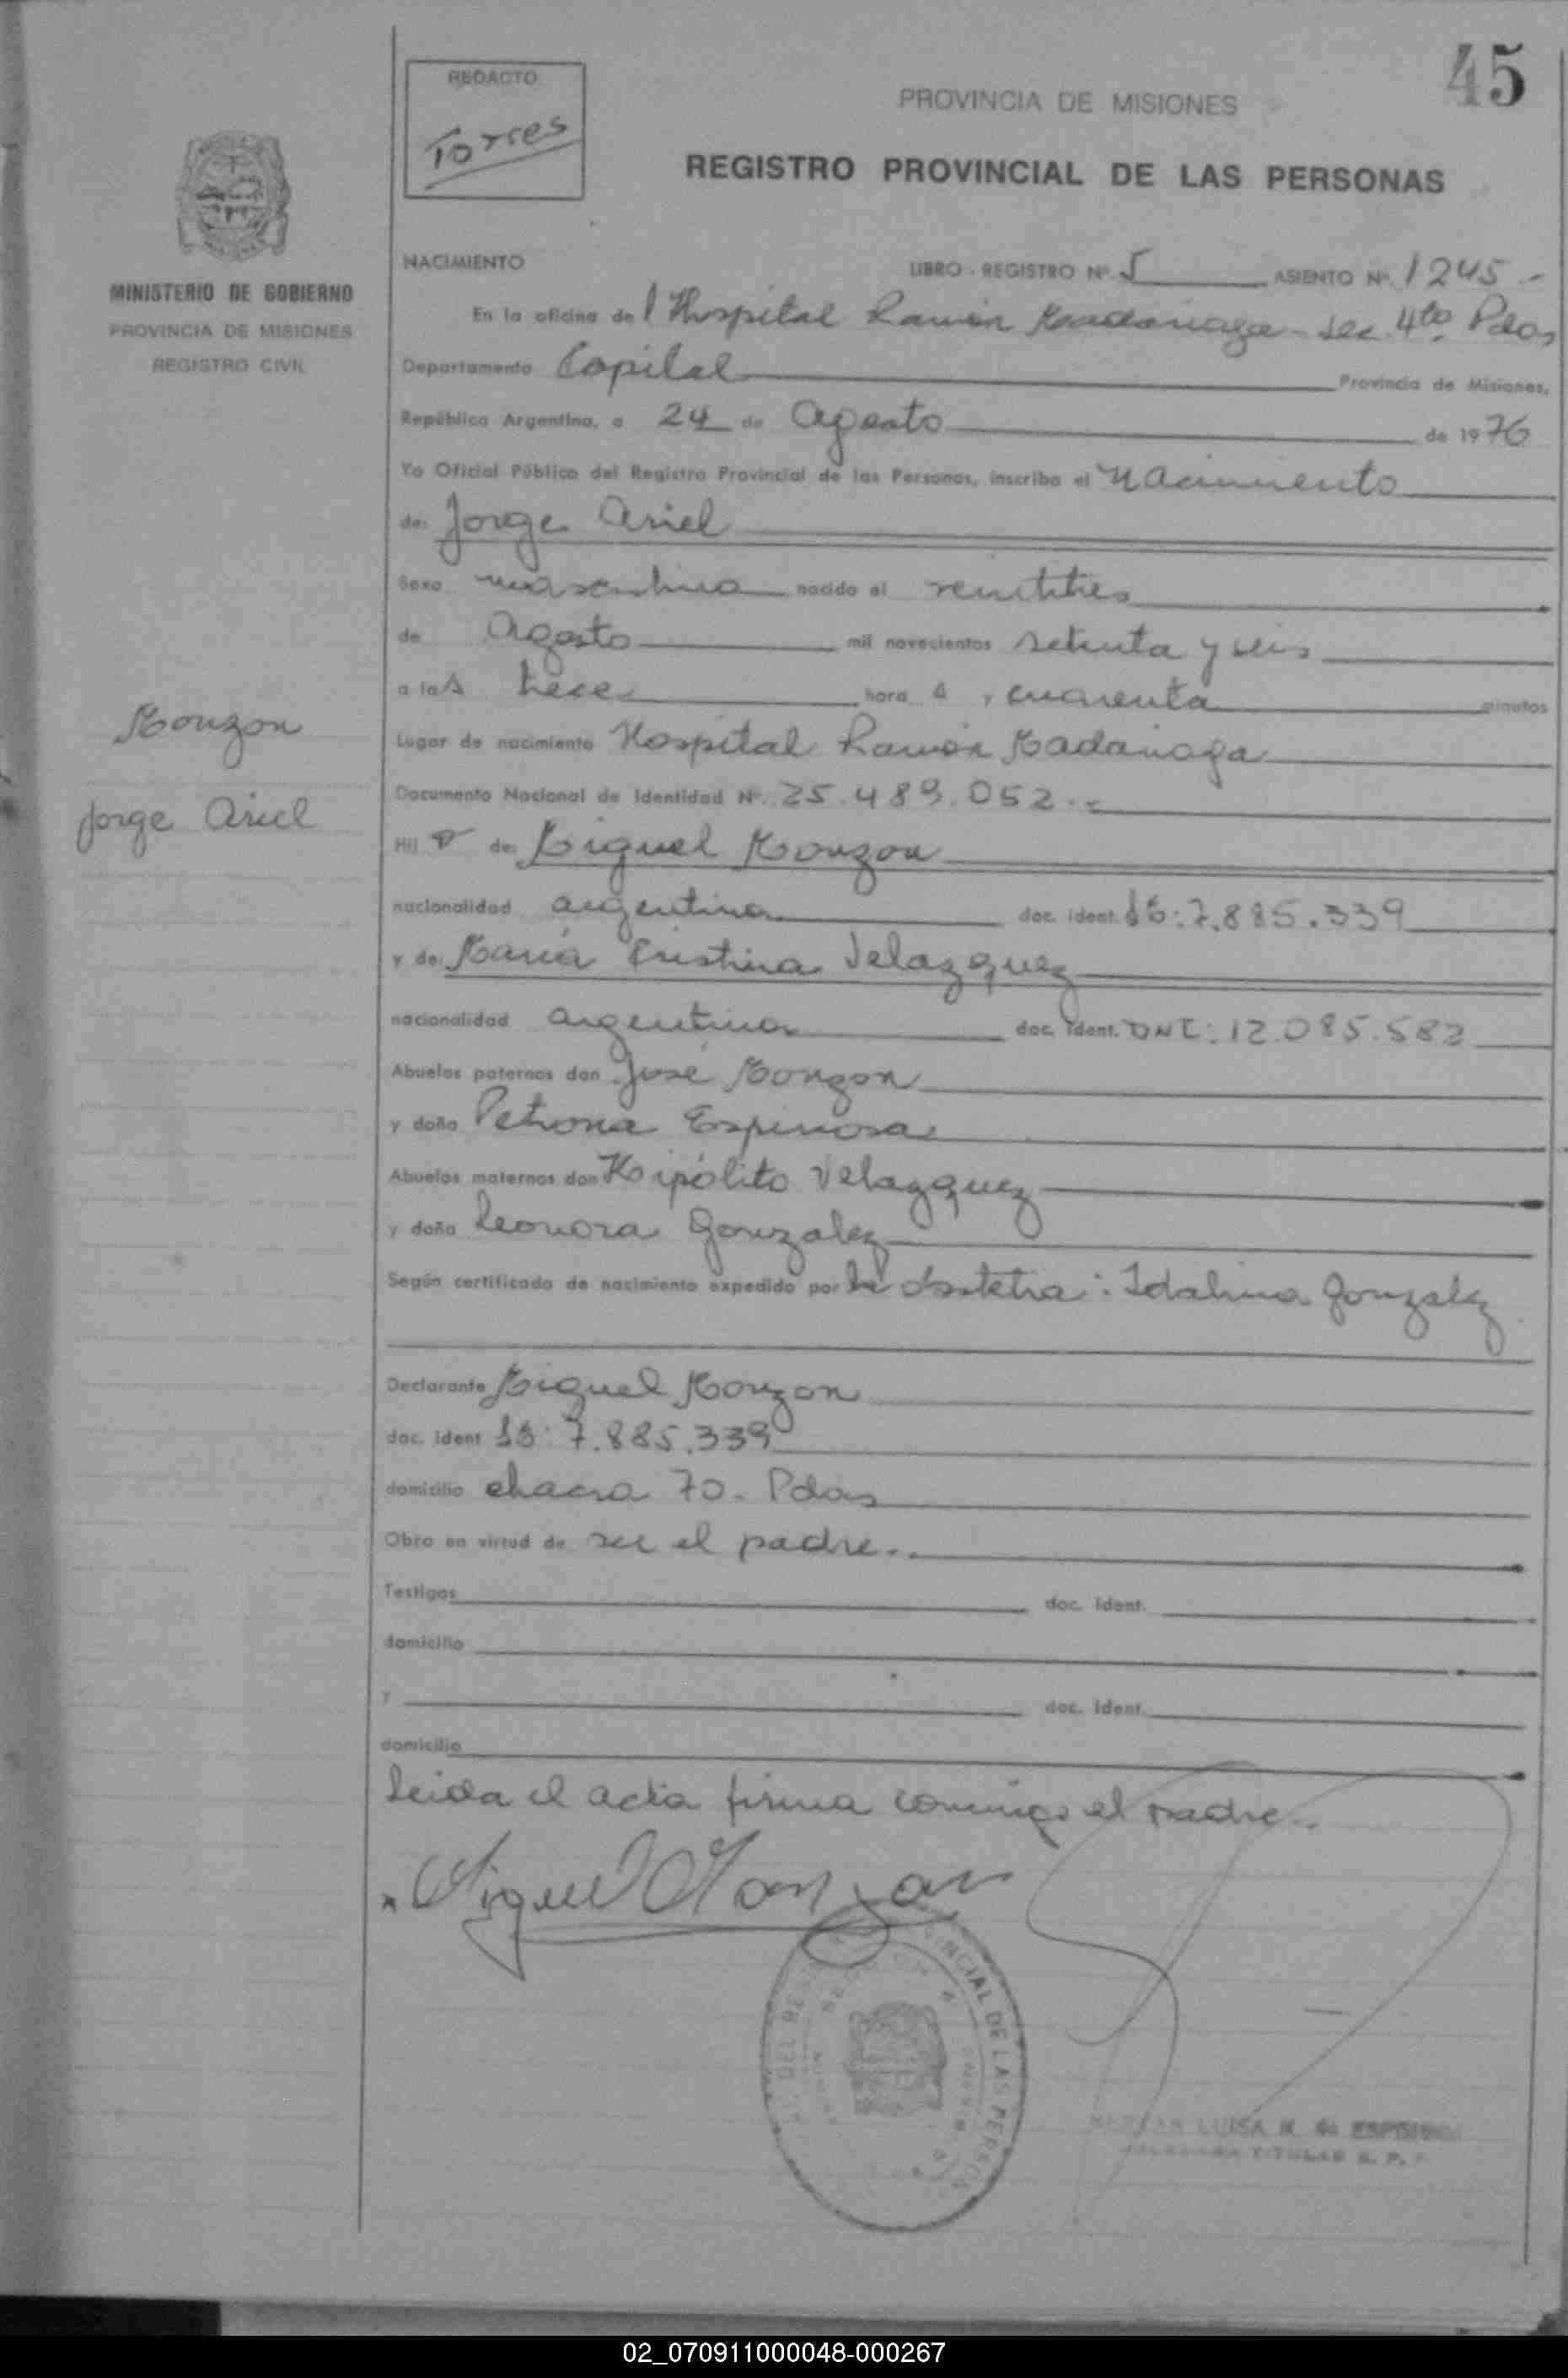 45
REDACTO
Torres
PROVINCIA DE MISIONES
REGISTRO PROVINCIAL DE LAS PERSONAS
MINISTERIO DE GOBIERNO
PROVINCIA DE MISIONES
REGISTRO CIVIL
NACIMIENTO LIBRO - REGISTRO Nº 5 ASIENTO Nº 1245.-
En la oficina del Hospital Ramón Madariaga - Sec. 4ta Pdas
Departamento Capital Provincia de Misiones,
República Argentina, a 24 de Agosto de 1976
Yo Oficial Público del Registro Provincial de las Personas, inscribo el Nacimiento
de: Jorge Ariel
Sexo masculino nacido el veintitres
de Agosto mil novecientos setenta y seis
a las trece hora s y cuarenta minutos
Monzon
Lugar de nacimiento Hospital Ramón Madariaga
Documento Nacional de Identidad Nº 25.489.052.-
Jorge Ariel
Hij o de: Miguel Monzon
nacionalidad argentina doc. ident. 7.885.339
y de: María Cristina Velazquez
nacionalidad argentina doc. ident. DNI: 12.085.582
Abuelos paternos don José Monzon
y doña Petrona Espinosa
Abuelos maternos don Hipólito Velazquez
y doña Leonora Gonzalez
Según certificado de nacimiento expedido por la obstetra: Idalina Gonzalez
Declarante Miguel Monzon
doc. ident 7.885.339
domicilio chacra 70. Pdas
Obra en virtud de ser el padre..
Testigos doc. ident.
domicilio
y doc. ident.
domicilio
Leida el acta firma conmigo el padre..
Miguel Monzon
DEL REGISTRO PROVINCIAL DE LAS PERSONAS
LUISA M. de
TITULAR R. P.
02_070911000048-000267